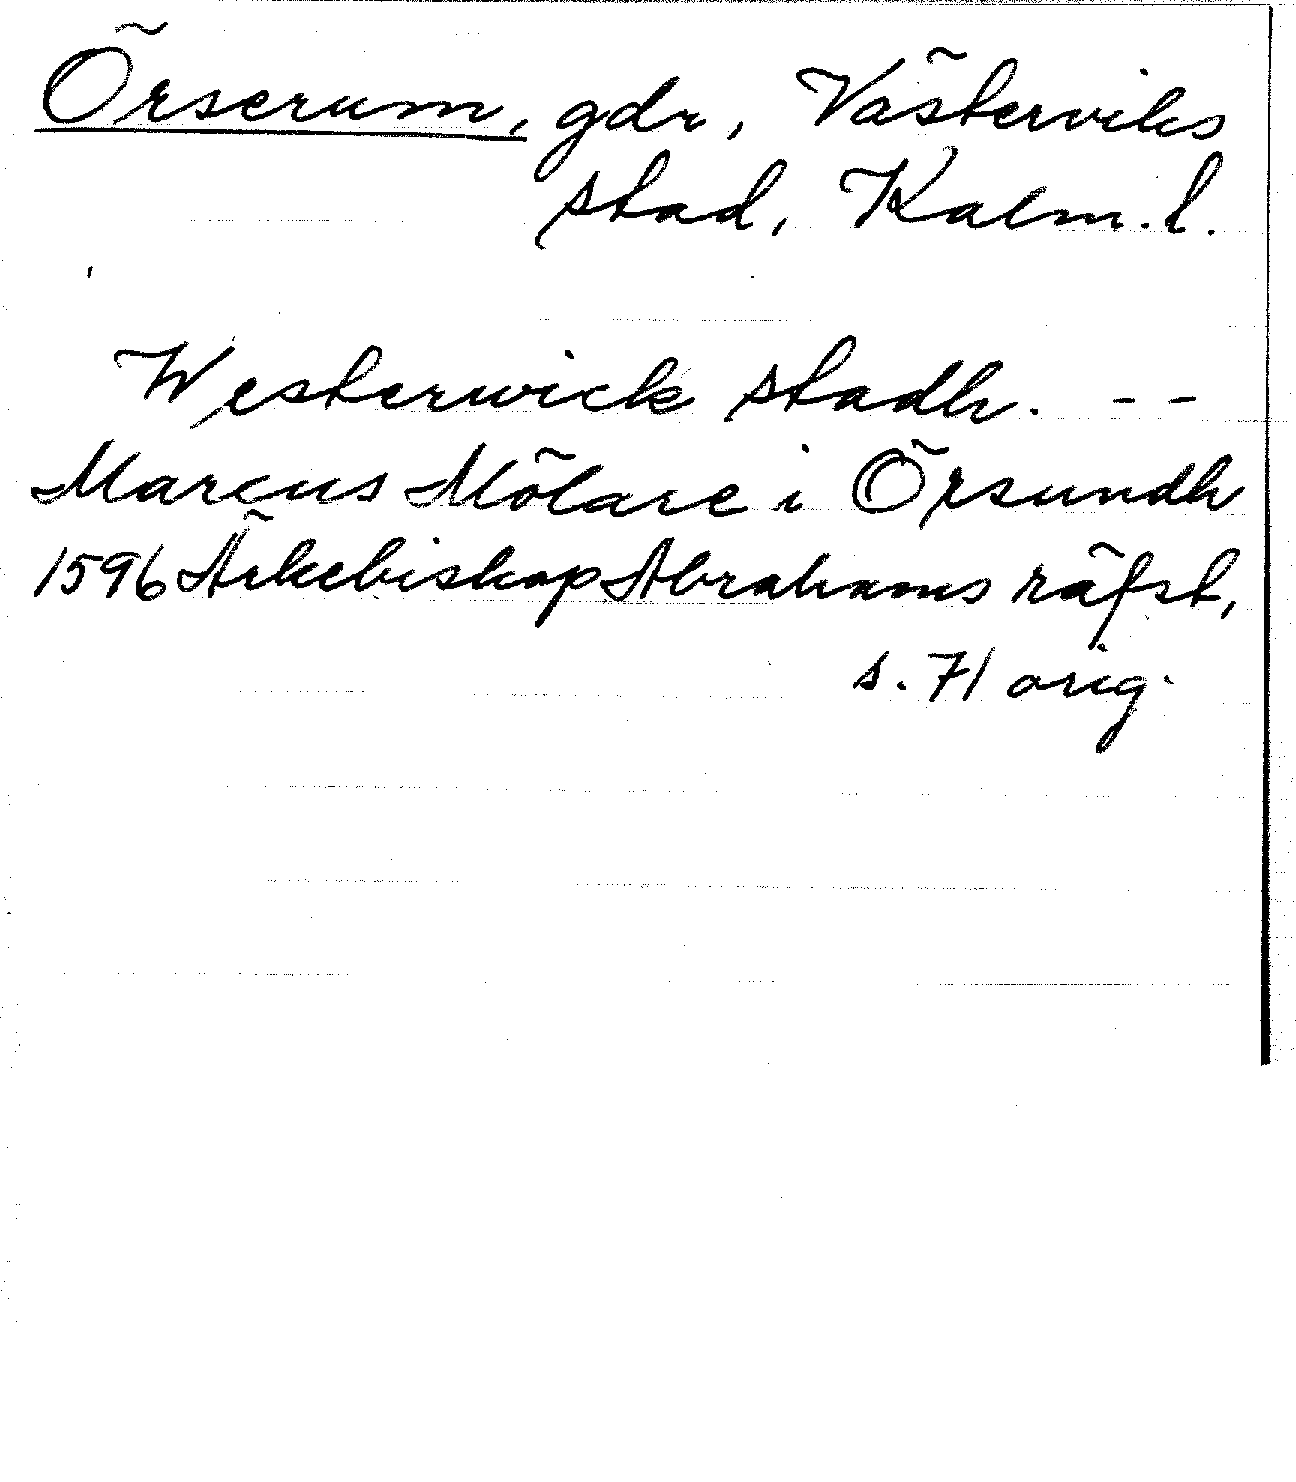 Örserum, gdr, Västerviks
stad, Kalm. l.
Westerwick stadh. - -
Marcus Mölare i Örsundh
1596 Ärkebiskop Abrahams räfst,
s. 71 orig.